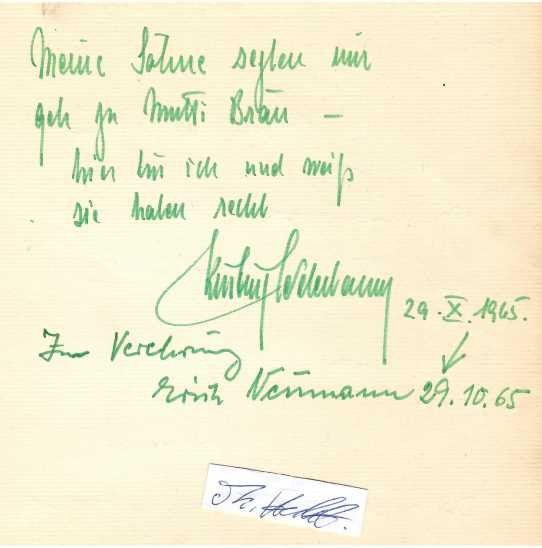 Meine Söhne segten mir
geh zu Mutti Bräu –
hier bin ich und weiß
sie haben recht
29. X. 1965.
In Verehrung
Erich Neumann 29.10.65